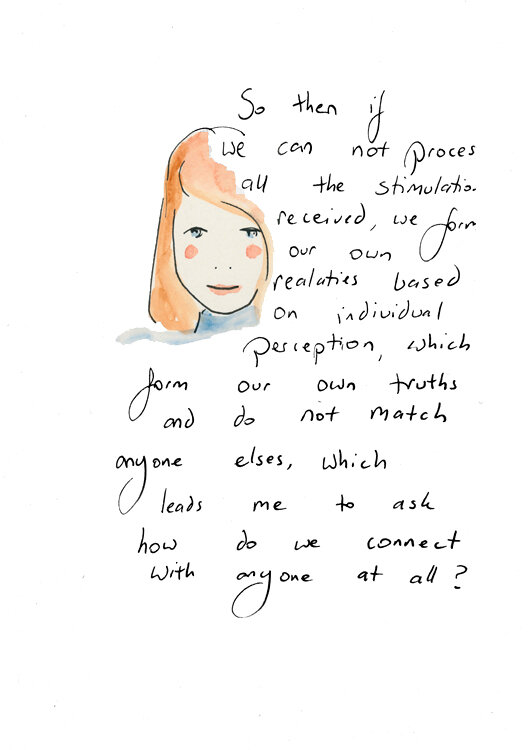 So then if
we can not proces
all the stimulatio.
received, we form
our own
realaties based
on individual
perception, which
form our own truths
and do not match
anyone elses, which
leads me to ask
how do we connect
with anyone at all?